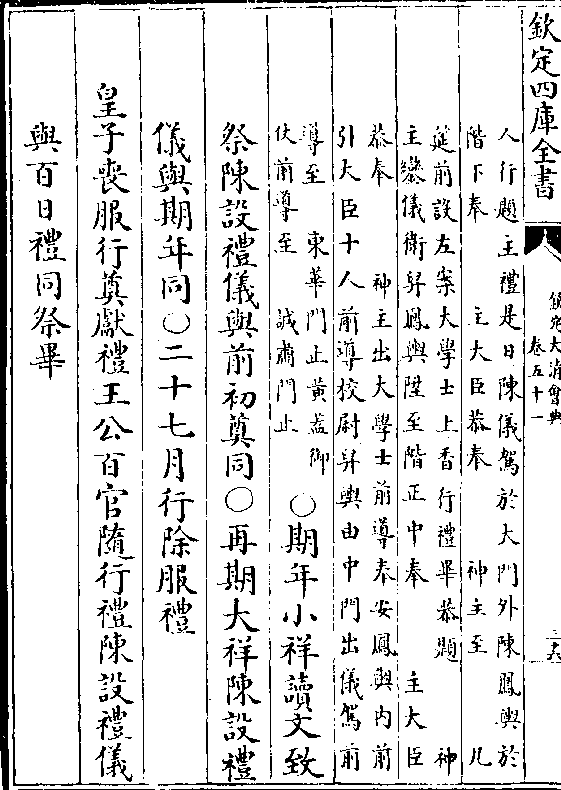 欽定四庫全書
欽定大清會典
卷五十一
人行題主禮是日陳儀駕於大門外陳鳳輿於
階下奉 主大臣恭奉 神主至 几
筵前設左案大學士上香行禮畢恭題 神
主鑾儀衛舁鳳輿陞至階正中奉 主大臣
恭奉 神主出大學士前導奉安鳳輿内前
引大臣十人前導校尉舁輿由中門出儀駕前
導至 東華門止黄蓋御
仗前導至 誠肅門止
○期年小祥讀文致
祭陳設禮儀與前初奠同○再期大祥陳設禮
儀與期年同○二十七月行除服禮
皇子喪服行奠獻禮王公百官隨行禮陳設禮儀
與百日禮同祭畢